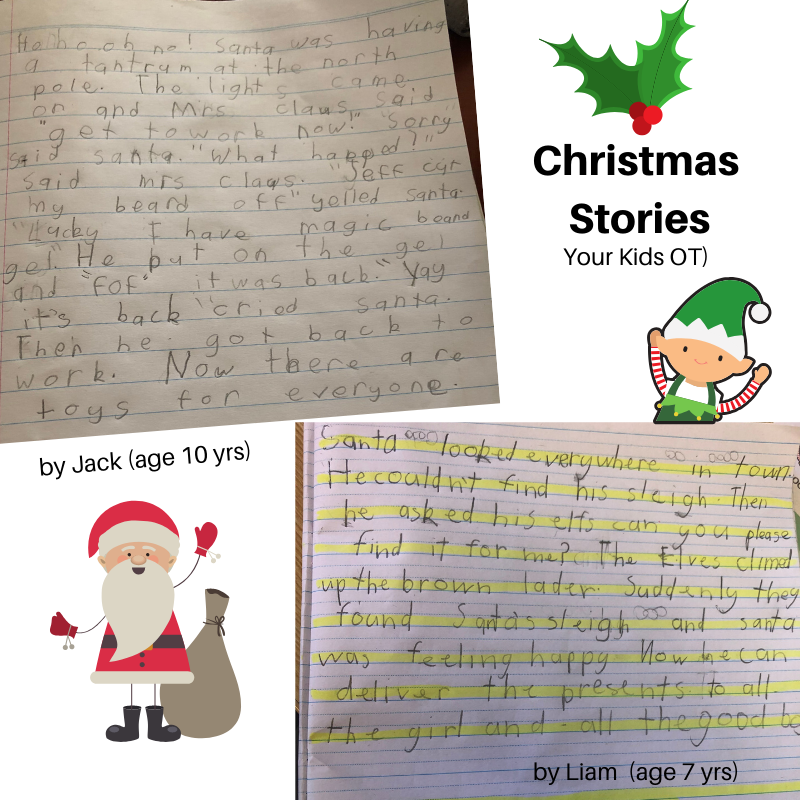 Ho ho oh no! Santa was having
a tantrum at the north
pole. The lights came
on and Mrs claus said
"get to work now!" "Sorry"
said santa. "What happed?"
said mrs claus. "Jeff cut
my beard off" yelled santa.
"Lucky I have magic beard
gel". He put on the gel
and "fof" it was back." Yay
it's back "cried santa.
Then he got back to
work. Now there are
toys for everyone.
by Jack (age 10 yrs)
Christmas
Stories
Your Kids OT)
Santa looked everywhere in town.
He couldn't find his sleigh. Then
he asked his elfs can you please
find it for me? The Elves climed
up the brown lader. Suddenly they
found Santa's sleigh and santa
was feeling happy Now he can
deliver the presents to all
the girl and all the good bo
by Liam (age 7 yrs)